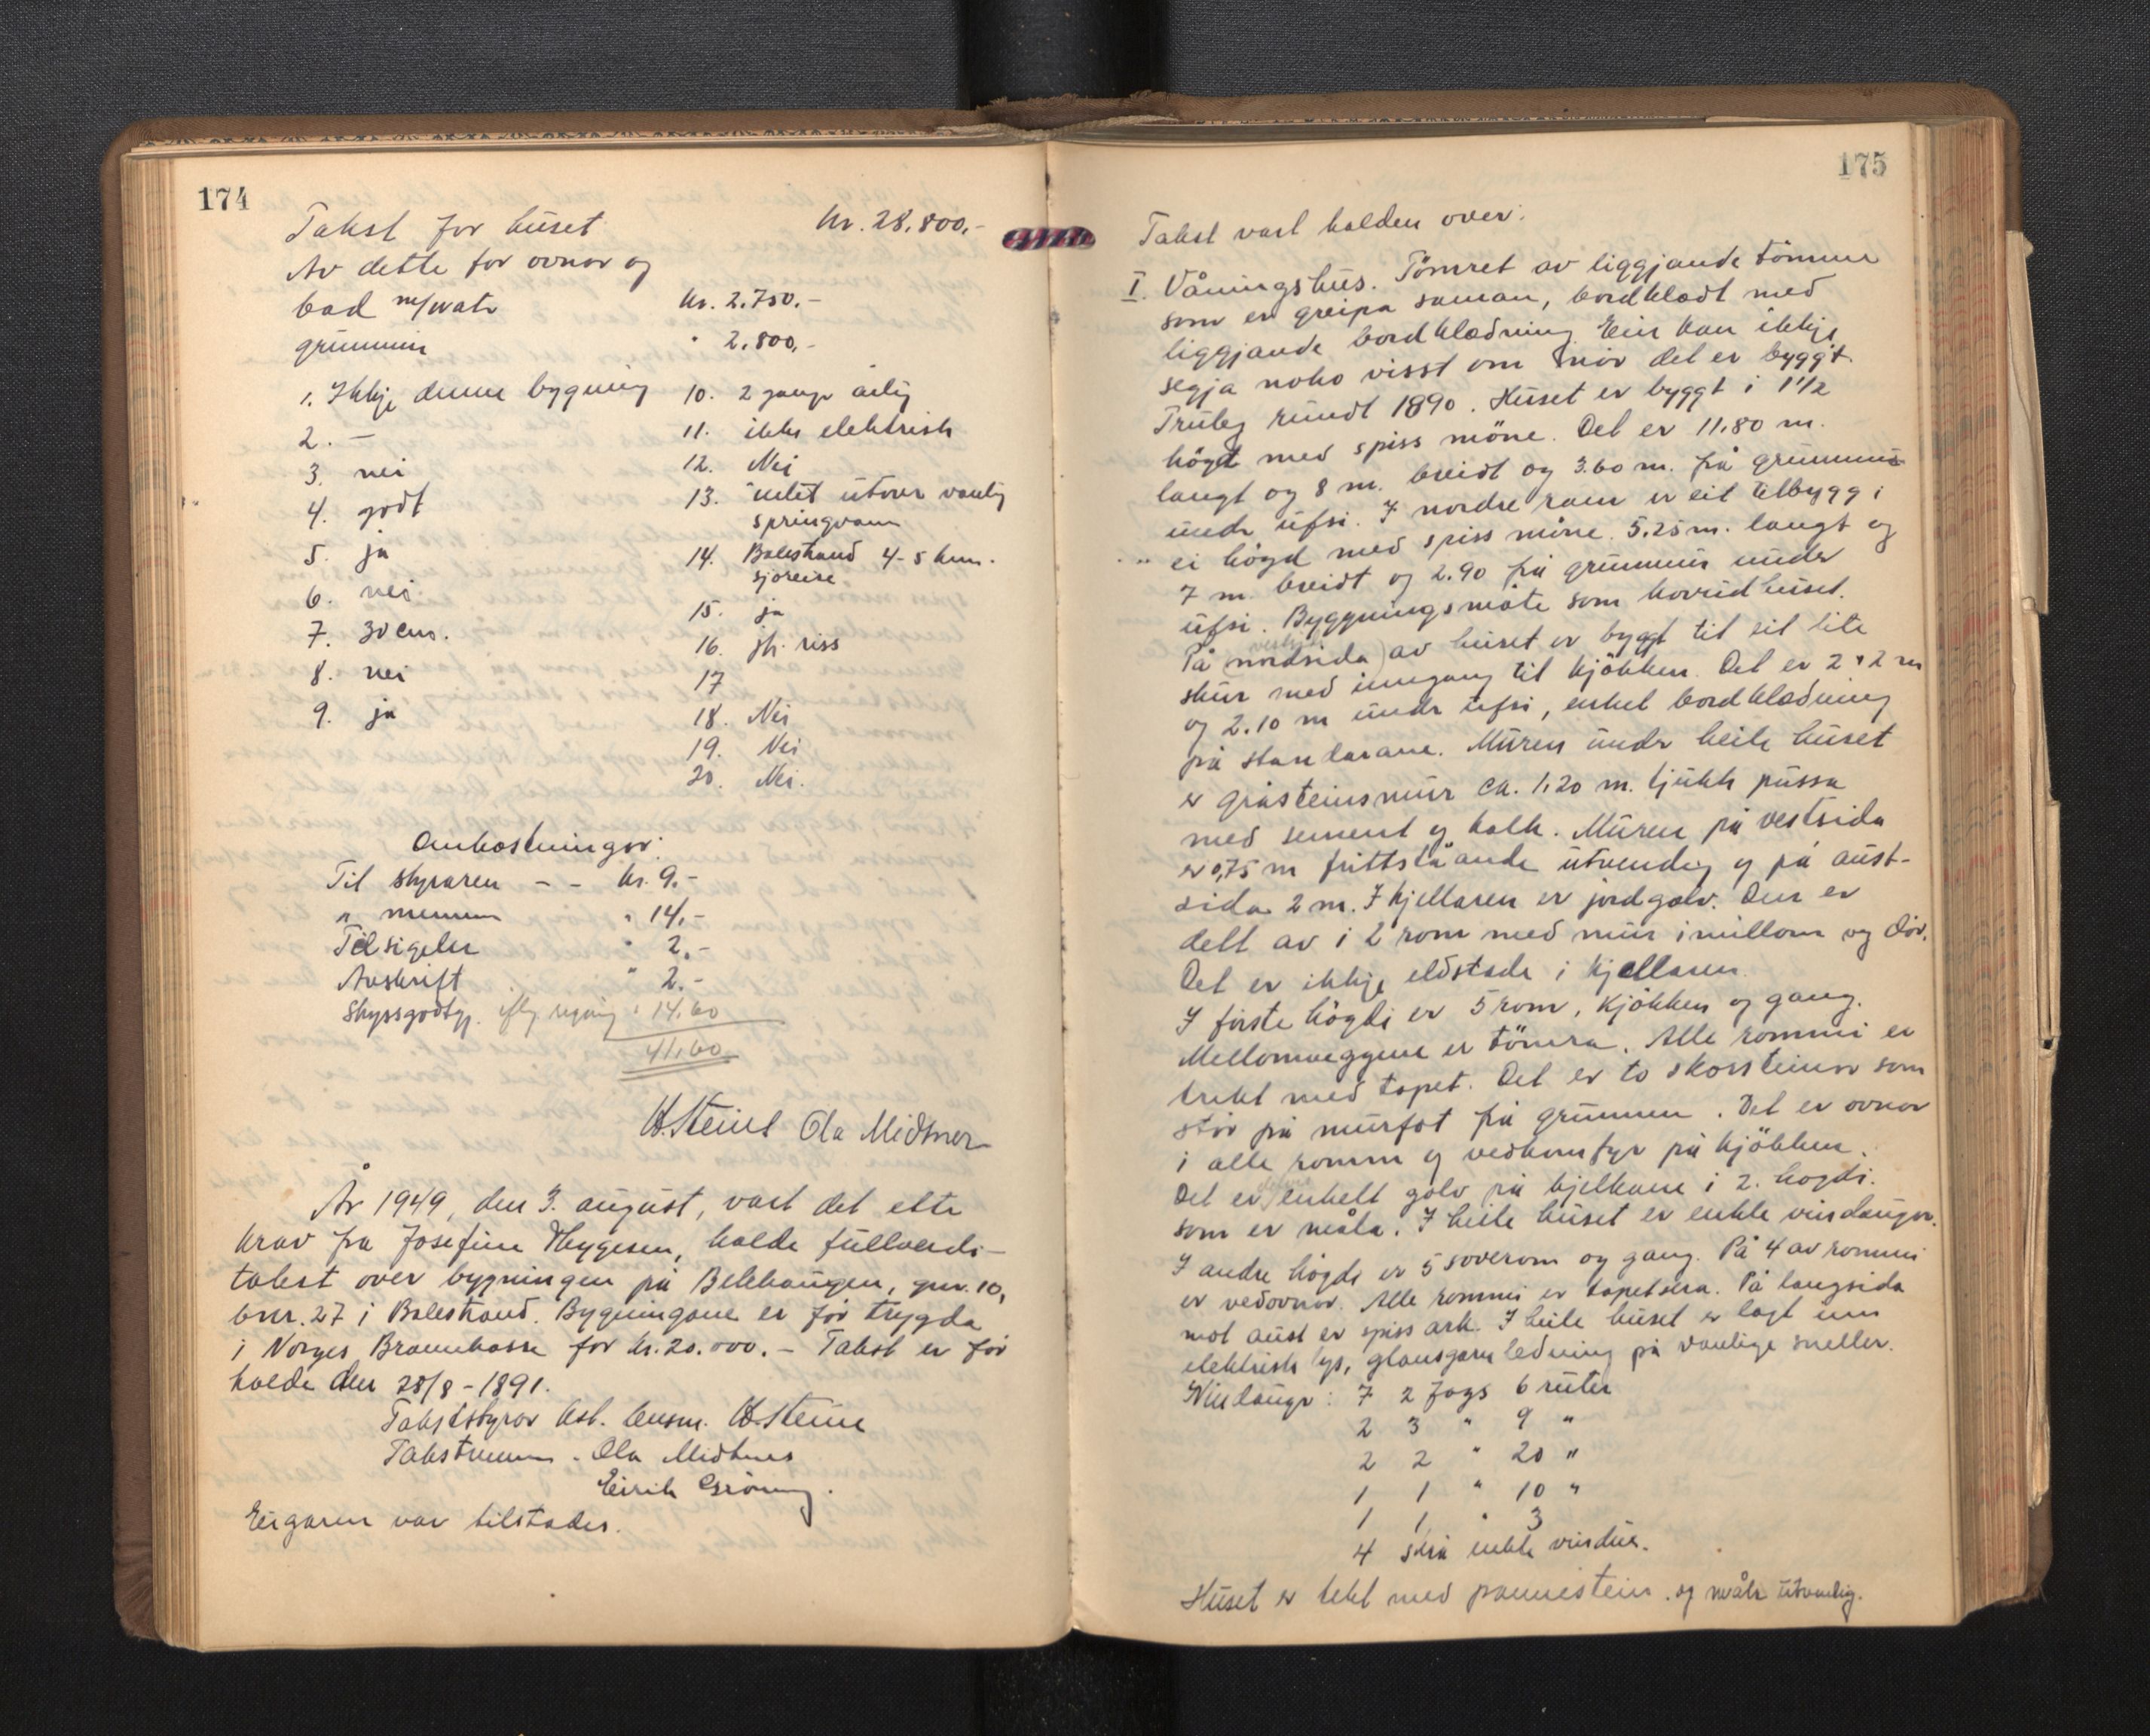 174
Takst for huset kr. 28.800,-
Av dette for ovnar og
bad m/vatn kr. 2.750.-
grunnmur " 2.800,-
1. Ikkje denne bygning
2. —
3. nei
4. godt
5. ja
6. nei
7. 30 cm.
8. nei
9. ja
10. 2 gange årlig
11. ikke elektrisk
12. Nei
13. intet utover vanlig
springvann
14. Balestrand 4-5 km.
sjøreise
15. ja
16. jfr. riss
17
18. Nei
19. Nei
20. Nei.
Omkostningar:
Til styraren - - kr. 9.-
" mennene " 14.-
Tilsigelse " 2.-
Avskrift " 2.-
Skyssgodtgj. iflg regning " 14.60
41.60
H Steine Ola Midtnes
År 1949, den 3. august, vart det etter
krav fra Josefine Thygesen, halde fullverdi-
takst over bygningen på Belehaugen, gnr. 10,
bnr. 27 i Balestrand. Bygningane er før trygda
i Norges Brannkasse for kr. 20.000.- Takst er før
halde den 28/8-1891.
Takststyrar kst. lensm. H Steine
Takstmenn. Ola Midtnes
Eirik Grøning.
Eigaren var tilstades.
175
Takst vart halden over:
I. Våningshus. Tömret av liggjande tömmer
som er greipa saman, bordklædt med
liggjande bordklædning. Ein kan ikkje
segja noko visst om når det er byggt.
Truleg rundt 1890. Huset er byggt i 1 1/2
högd med spiss möne. Det er 11.80 m.
langt og 8 m. breidt og 3.60 m. frå grunnmur
under ufsi. I nordre ram er eit tilbygg i
ei högd med spiss möne. 5.25 m. langt og
7 m. breidt og 2.90 frå grunnmur under
ufsi. Byggningsmåte som hovudhuset.
På nordsida) av huset er byggt til eit lite
skur med inngang til kjökken. Det er 2 x 2 m
og 2.10 m under ufsi, enkel bordklædning
på standarane. Muren under heile huset
er gråsteinsmur ca. 1.20 m. tjukk pussa
med sement og kalk. Muren på vestsida
er 0,75 m frittståande utvendig og på aust-
sida 2 m. I kjellaren er jordgolv. Den er
delt av i 2 rom med mur imillom og dör.
Det er ikkje eldstade i kjellaren.
I förste högdi er 5 rom, kjökken og gang.
Mellomveggene er tömra. Alle rommi er
trekt med tapet. Det er to skorsteinar som
står på murfot frå grunnen. Det er ovnar
i alle romm og vedkomfyr på kjökken.
Det er enkelt golv på bjelkane i 2. högdi.
som er måla. I heile huset er enkle vindaugor.
I andre högdi er 5 soverom og gang. På 4 av rommi
er vedovnar. Alle rommi er tapetsera. På langsida
mot aust er spiss ark. I heile huset er lagt inn
elektrisk lys, glansgarn ledning på vanlige sneller.
Vindaugo: 7 2 fags 6 ruter
2 3 " 9 "
2 2 " 20 "
1 1 " 10 "
1 1 " 3
4 små enkle vinduer.
Huset er tekt med pannestein. og måla utvendig.